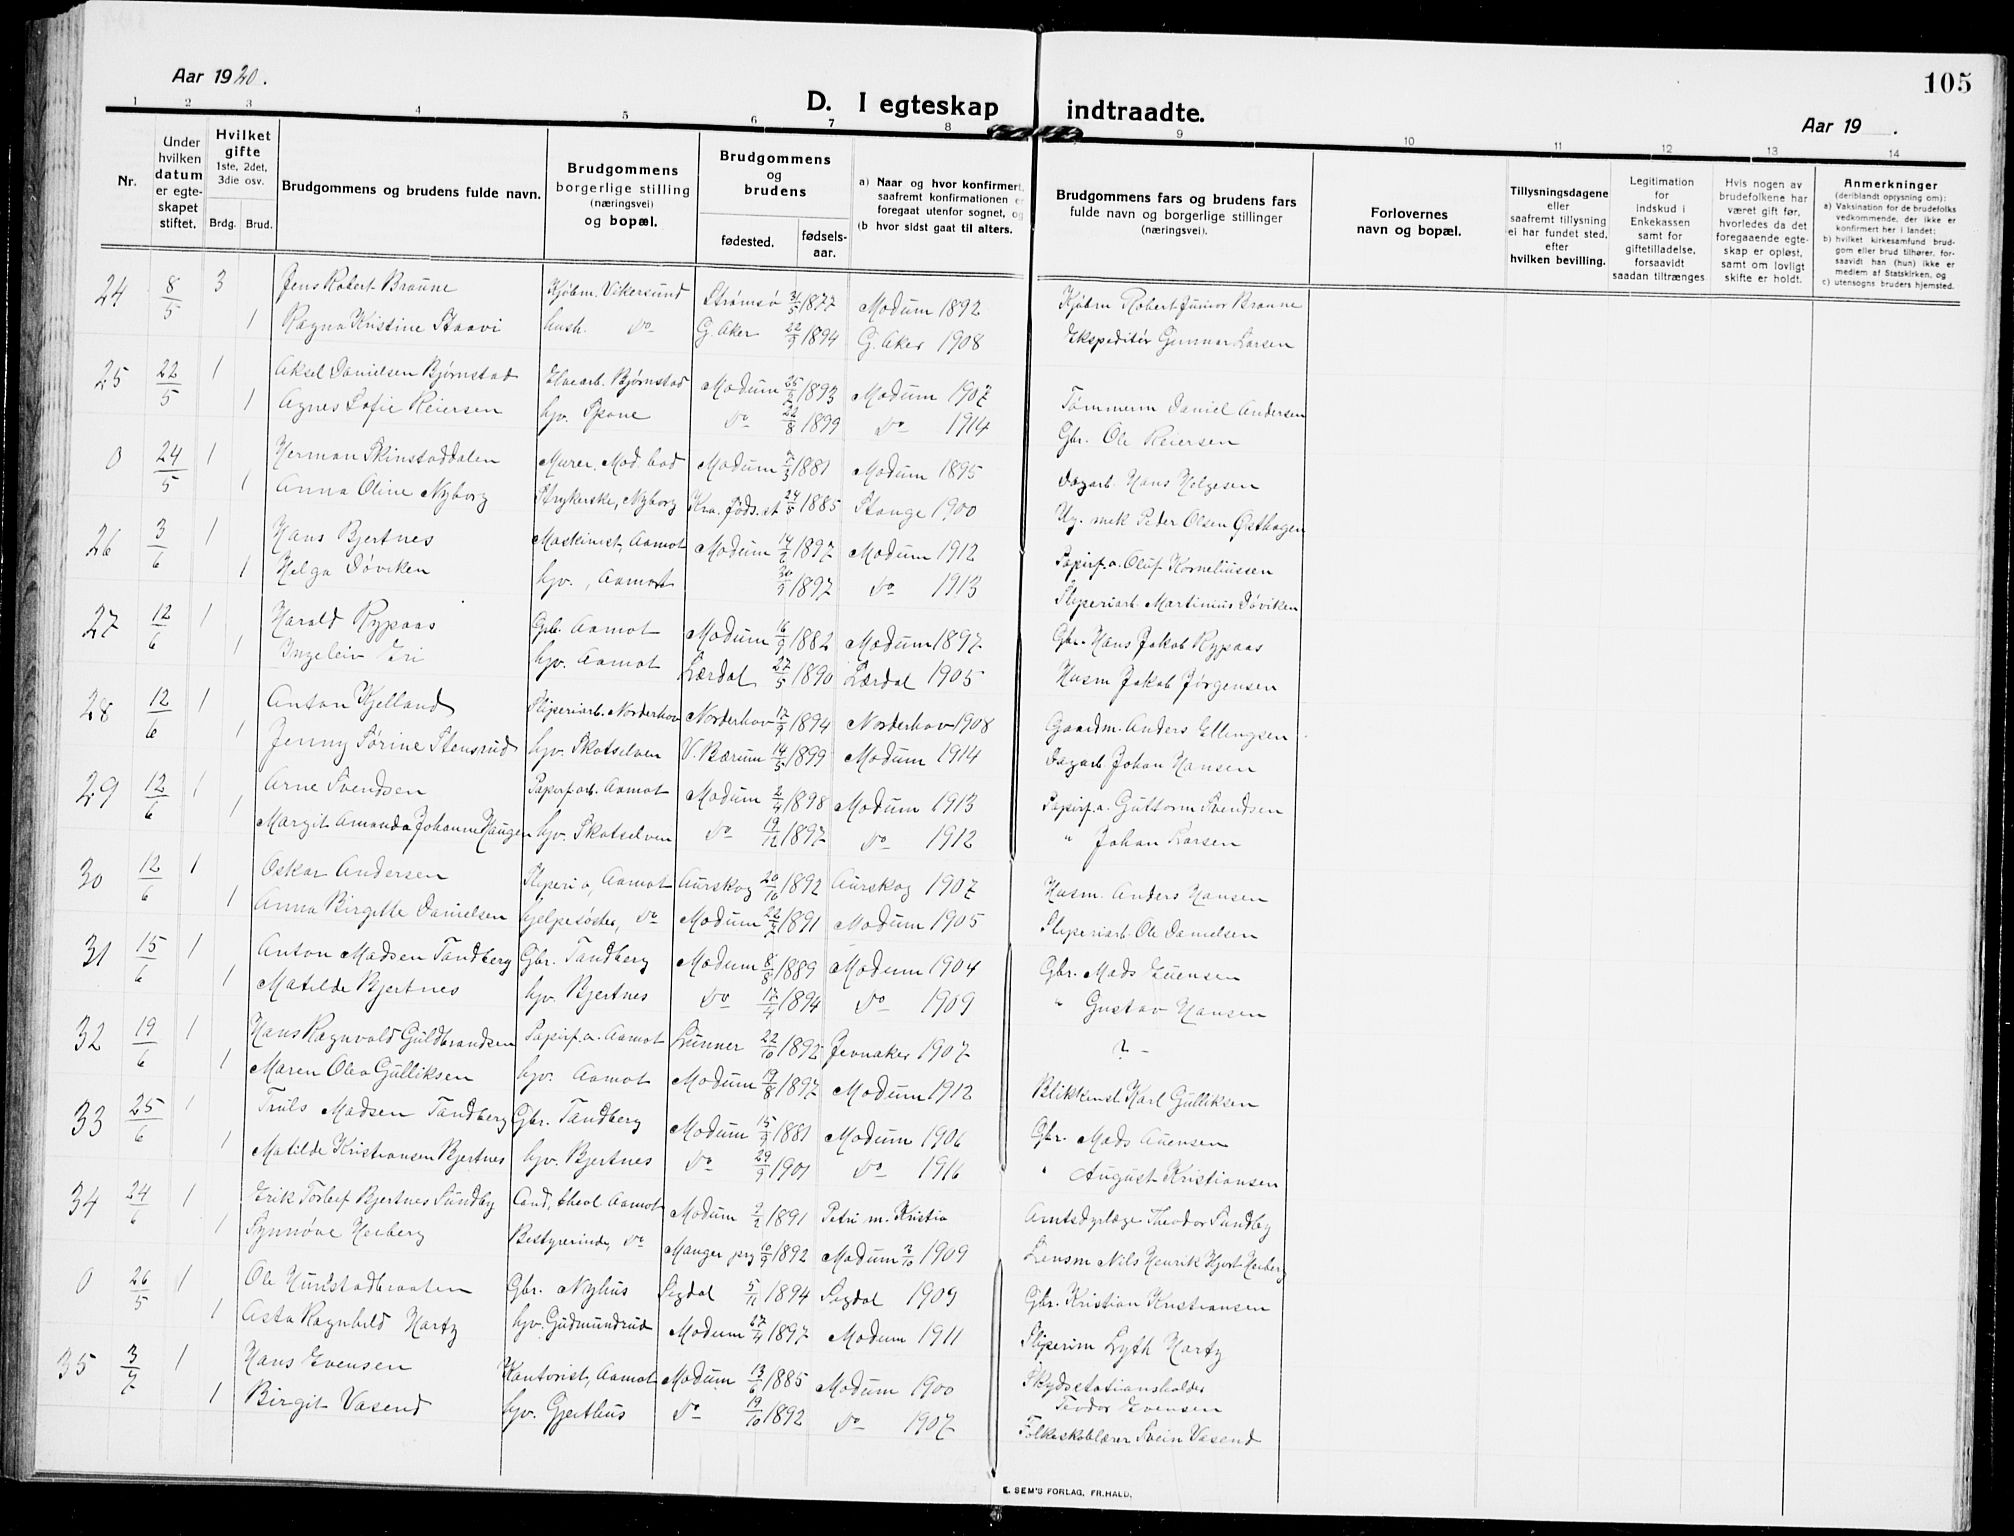 Aar 1920.
D. I egteskap indtraadte.
Aar 19 .
105
1 2 3 4 5 6 7 8 9 10 11 12 13 14
Nr.
Under hvilken datum er egteskapet stiftet.
Hvilket gifte 1ste, 2det, 3die osv.
Brdg. Brud.
Brudgommens og brudens fulde navn.
Brudgommens borgerlige stilling (næringsvei) og bopæl.
Brudgommens og brudens
fødested. fødselsaar.
a) Naar og hvor konfirmert, saafremt konfirmationen er foregaat utenfor sognet, og
(b hvor sidst gaat til alters.
Brudgommens fars og brudens fars fulde navn og borgerlige stillinger (næringsvei).
Forlovernes navn og bopæl.
Tillysningsdagene eller saafremt tillysning ei har fundet sted, efter hvilken bevilling.
Legitimation for indskud i Enkekassen samt for giftetilladelse, forsaavidt saadan tiltrænges
Hvis nogen av brudefolkene har været gift før, hvorledes da det foregaaende egteskap er opløst, samt om lovligt skifte er holdt.
Anmerkninger (deriblandt opgysning om):
a) Vaksination for de brudefolks vedkommende, der ikke er konfirmert her i landet:
b) hvilket kirkesamfund brudgom eller brud tilhører, forsaavidt han (hun) ikke er medlem af Statskirken, og
c) utensogns bruders hjemsted.
24 8/5 3 Jens Robert Braune Kjøbm. Vikersund Strømsø 31/5 1877 Modum 1892 Kjøbm Robert Junior Braune
1 Ragna Kristine Staavi hush. do G. Aker 22/9 1894 G. Aker 1908 Ekspeditör Gunnar Larsen
25 22/5 1 Aksel Danielsen Bjørnstad Bjørnstad Modum 1893 Modum 1907 Tømmerm Daniel Andersen
1 Agnes Sofie Reiersen hjv. Spone do 22/8 1899 do 1914 Gbr. Ole Reiersen
0 24/5 1 Herman Skinstaddalen Murer. Mod. bad Modum 7/3 1881 Modum 1895 Dagarb. Hans Helgesen
1 Anna Oline Nyborg Strykerske, Nyborg Kra. føds. st 24/5 1885 Stange 1900 mek Peder Olsen Østhagen
26 3/6 1 Hans Bjertnes Maskinist, Aamot Modum 1897 Modum 1912 Papirf. a. Oluf Korneliussen
1 Helga Døviken hjv., Aamot 20/9 1897 do 1913 Sliperiarb. Martinius Døviken
27 12/6 1 Harald Rypaas Gbr. Aamot Modum 16/9 1882 Modum 1897 Gbr. Hans Jakob Rypaas
1 Ingeleiv Eri hjv. Aamot Lærdal 27/5 1890 Lærdal 1905 Husm Jakob Jørgensen
28 12/6 1 Anton Kjelland Sliperiarb. Norderhov Norderhov 17/9 1894 Norderhov 1908 Gaardm. Anders Ellingsen
1 Jenny Sørine Stensrud hjv. Skotselven V. Bærum 14/5 1899 Modum 1914 Dagarb Johan Hansen
29 12/6 1 Arne Svendsen Papirf. arb. Aamot Modum 2/4 1898 Modum 1913 Papirf. a. Guttorm Svendsen
1 Margit Amanda Johanne Haugen hjv. Skotselven do 19/12 1897 do 1912 " Johan Larsen
30 12/6 1 Oskar Andersen Sliperi a, Aamot Aurskog 20/10 1892 Aurskog 1907 Husm. Anders Hansen
1 Anna Birgitte Danielsen hjelpesøster, do Modum 1891 Modum 1905 Sliperiarb. Ole Danielsen
31 15/6 1 Anton Madsen Tandberg Gbr. Tandberg Modum 8/8 1889 Modum 1904 Gbr. Mads Evensen
1 Matilde Bjertnes hjv. Bjertnes do 17/4 1894 do 1909 " Gustav Hansen
32 19/6 1 Hans Ragnvald Guldbrandsen Papirf. a. Aamot Lunner 22/10 1892 Jevnaker 1907 ? -
1 Maren Olea Gulliksen hjv. Aamot Modum 19/8 1897 Modum 1912 Blikkensl Karl Gulliksen
33 25/6 1 Truls Madsen Tandberg Gbr. Tandberg Modum 15/9 1881 Modum 1906 Gbr. Mads
1 Matilde Kristiansen Bjertnes hjv. Bjertnes do 29/9 1901 do 1916 " August Kristiansen
34 24/6 1 Erik Torleif Bjertnes Sundby Cand. theol Aamot Modum 2/2 1891 Petri m. Kristia Amtsdyrlæge Theodor Sundby
1 Synnøve Heiberg Bestyrerinde, do Manger prg 1892 Modum 1909 Lensm Nils Henrik Hjort Heiberg
0 26/5 1 Ole Hundstadbraaten Gbr. Nyhus Sigdal 5/11 1894 Sigdal 1909 Gbr. Kristian Kristiansen
1 Asta Ragnhild Hartz hjv. Gudmundrud Modum 1897 Modum 1911 Sliperim Lyth Hartz
35 3/7 1 Hans Evensen Kontorist, Aamot Modum 13/6 1885 Modum 1900 Skydsstationsholder
Teodor Evensen
1 Birgit Vasend hjv. Gjerthus do 19/10 1892 do 1907 Folkeskolelærer Svein Vasend
E. SEM'S FORLAG, FR.HALD.